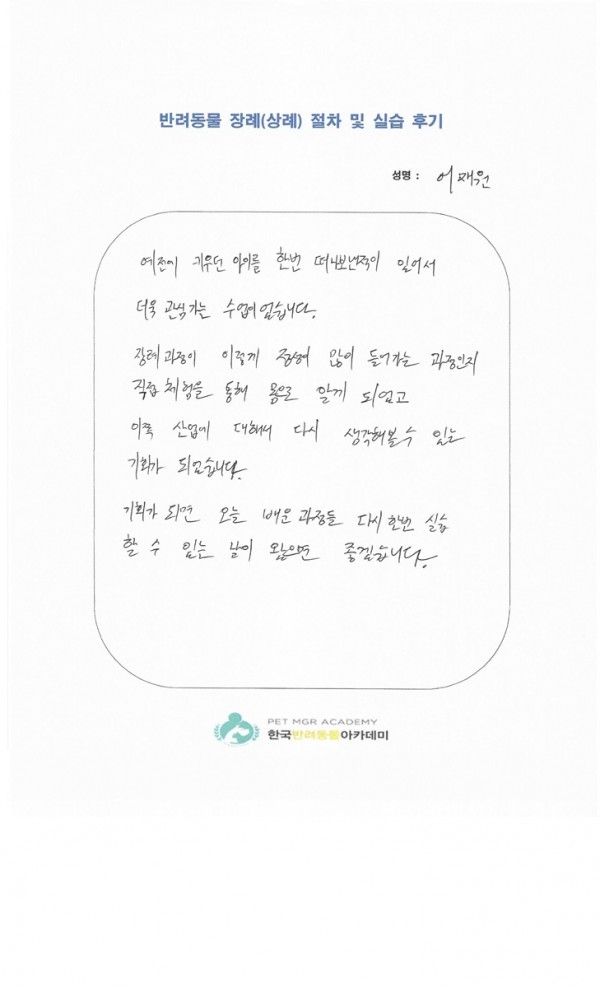 반려동물 장례(상례) 절차 및 실습 후기
성명 : 어재원
예전에 키우던 아이를 한번 떠나보낸적이 있어서
더욱 관심가는 수업이였습니다.
장례 과정이 이렇게 정성이 많이 들어가는 과정인지
직접 체험을 통해 몸으로 알게 되었고
이쪽 산업에 대해서 다시 생각해볼 수 있는
기회가 되었습니다.
기회가 되면 오늘 배운 과정들 다시 한번 실습
할 수 있는 날이 왔으면 좋겠습니다.
PET MGR ACADEMY
한국반려동물아카데미